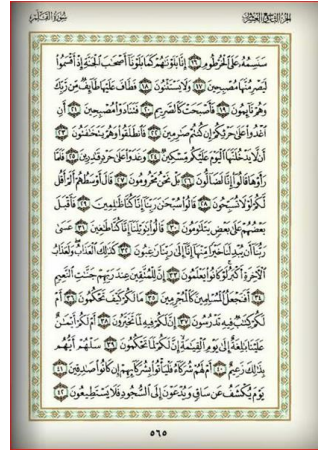 الجزء التاسع والعشرون سورة القلم
سنسمه على الخرطوم ١٦ إنا بلوناهم كما بلونا أصحاب الجنة إذ أقسموا
ليصرمنها مصبحين ١٧ ولا يستثنون ١٨ فطاف عليها طائف من ربك
وهم نائمون ١٩ فأصبحت كالصريم ٢٠ فتنادوا مصبحين ٢١ أن
اغدوا على حرثكم إن كنتم صارمين ٢٢ فانطلقوا وهم يتخافتون ٢٣
أن لا يدخلنها اليوم عليكم مسكين ٢٤ وغدوا على حرد قادرين ٢٥ فلما
رأوها قالوا إنا لضالون ٢٦ بل نحن محرومون ٢٧ قال أوسطهم ألم أقل
لكم لولا تسبحون ٢٨ قالوا سبحان ربنا إنا كنا ظالمين ٢٩ فأقبل
بعضهم على بعض يتلاومون ٣٠ قالوا يا ويلنا إنا كنا طاغين ٣١ عسى
ربنا أن يبدلنا خيرا منها إنا إلى ربنا راغبون ٣٢ كذلك العذاب ولعذاب
الآخرة أكبر لو كانوا يعلمون ٣٣ إن للمتقين عند ربهم جنات النعيم
٣٤ أفنجعل المسلمين كالمجرمين ٣٥ ما لكم كيف تحكمون ٣٦ أم
لكم كتاب فيه تدرسون ٣٧ إن لكم فيه لما تخيرون ٣٨ أم لكم أيمان
علينا بالغة إلى يوم القيامة إن لكم لما تحكمون ٣٩ سلهم أيهم
بذلك زعيم ٤٠ أم لهم شركاء فليأتوا بشركائهم إن كانوا صادقين ٤١
يوم يكشف عن ساق ويدعون إلى السجود فلا يستطيعون ٤٢
٥٦٥